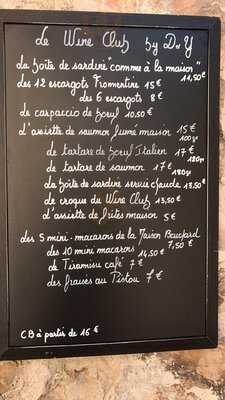 Le Wine Club by D&Y
La boîte de sardine "comme à la maison"
11,50€
des 12 escargots Fromentine 15€
des 6 escargots 8€
Le carpaccio de boeuf 10,50€
L'assiette de saumon fumé maison 15€
100gr
Le tartare de boeuf Italien 17€
180gr
Le tartare de saumon 17€
180gr
La boîte de sardine servie chaude 13.50€
Le croque du Wine Club 13,50€
L'assiette de frites maison 5€
Les 5 mini-macarons de la Maison Bouchard
7,50€
Les 10 mini macarons 14,50€
Le Tiramisu café 7€
Les fraises au Pistou 7€
CB à partir de 16€